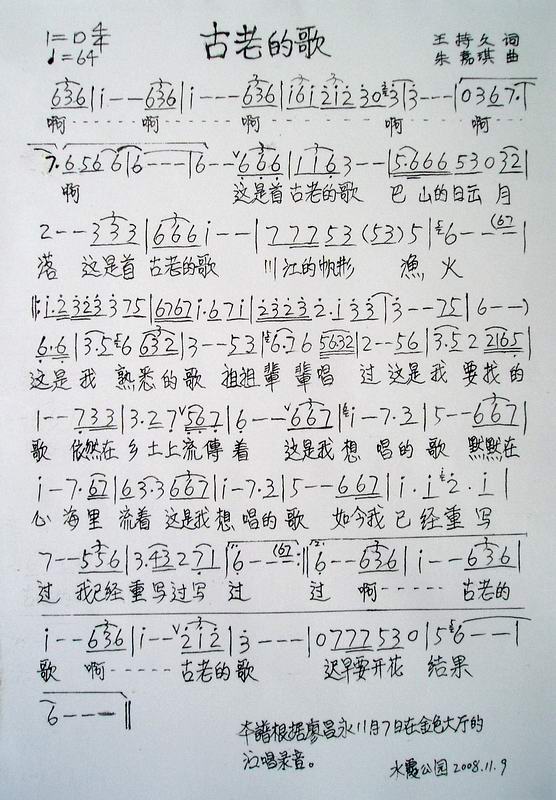 1=D 4/4
♩=64
古老的歌
王持久 词
朱嘉琪 曲
636|i---636|i---636|i6i2i2303|3---|0367·|
啊 啊 啊 啊 啊
7·65666|6---|6---666|1163--|5·66653032|
啊 这是首古老的歌 巴山的日云月
2--333|666i--|77753(53)5|6--(67
落 这是首古老的歌 川江的帆影 渔火
|:i·2323375|6767i·67i|23232·i33|3--75|6--)
6·6|3·56632|3--53|6·765632|2--56|3·522165|
这是我 熟悉的歌 祖祖辈辈唱 过 这是我 要找的
1--733|3·27567|6--667|i-7·3|5--667|
歌 依然在乡土上流传着 这是我想唱的歌 默默在
i-7·67|63·3667|i-7·3|5--667|i·i2·i|
心海里 流着 这是我想唱的歌 如今我已经重写
7--556|3·43271|6--(67:|6--636|i--636|
过 我已经重写过写 过 过 啊 古老的
i--636|i--212|3---|0777530|56--|
歌 啊 古老的歌 迟早要开花 结果
6---||
本譜根据廖昌永11月7日在金色大厅的
演唱录音。
水霞公园 2008.11.9